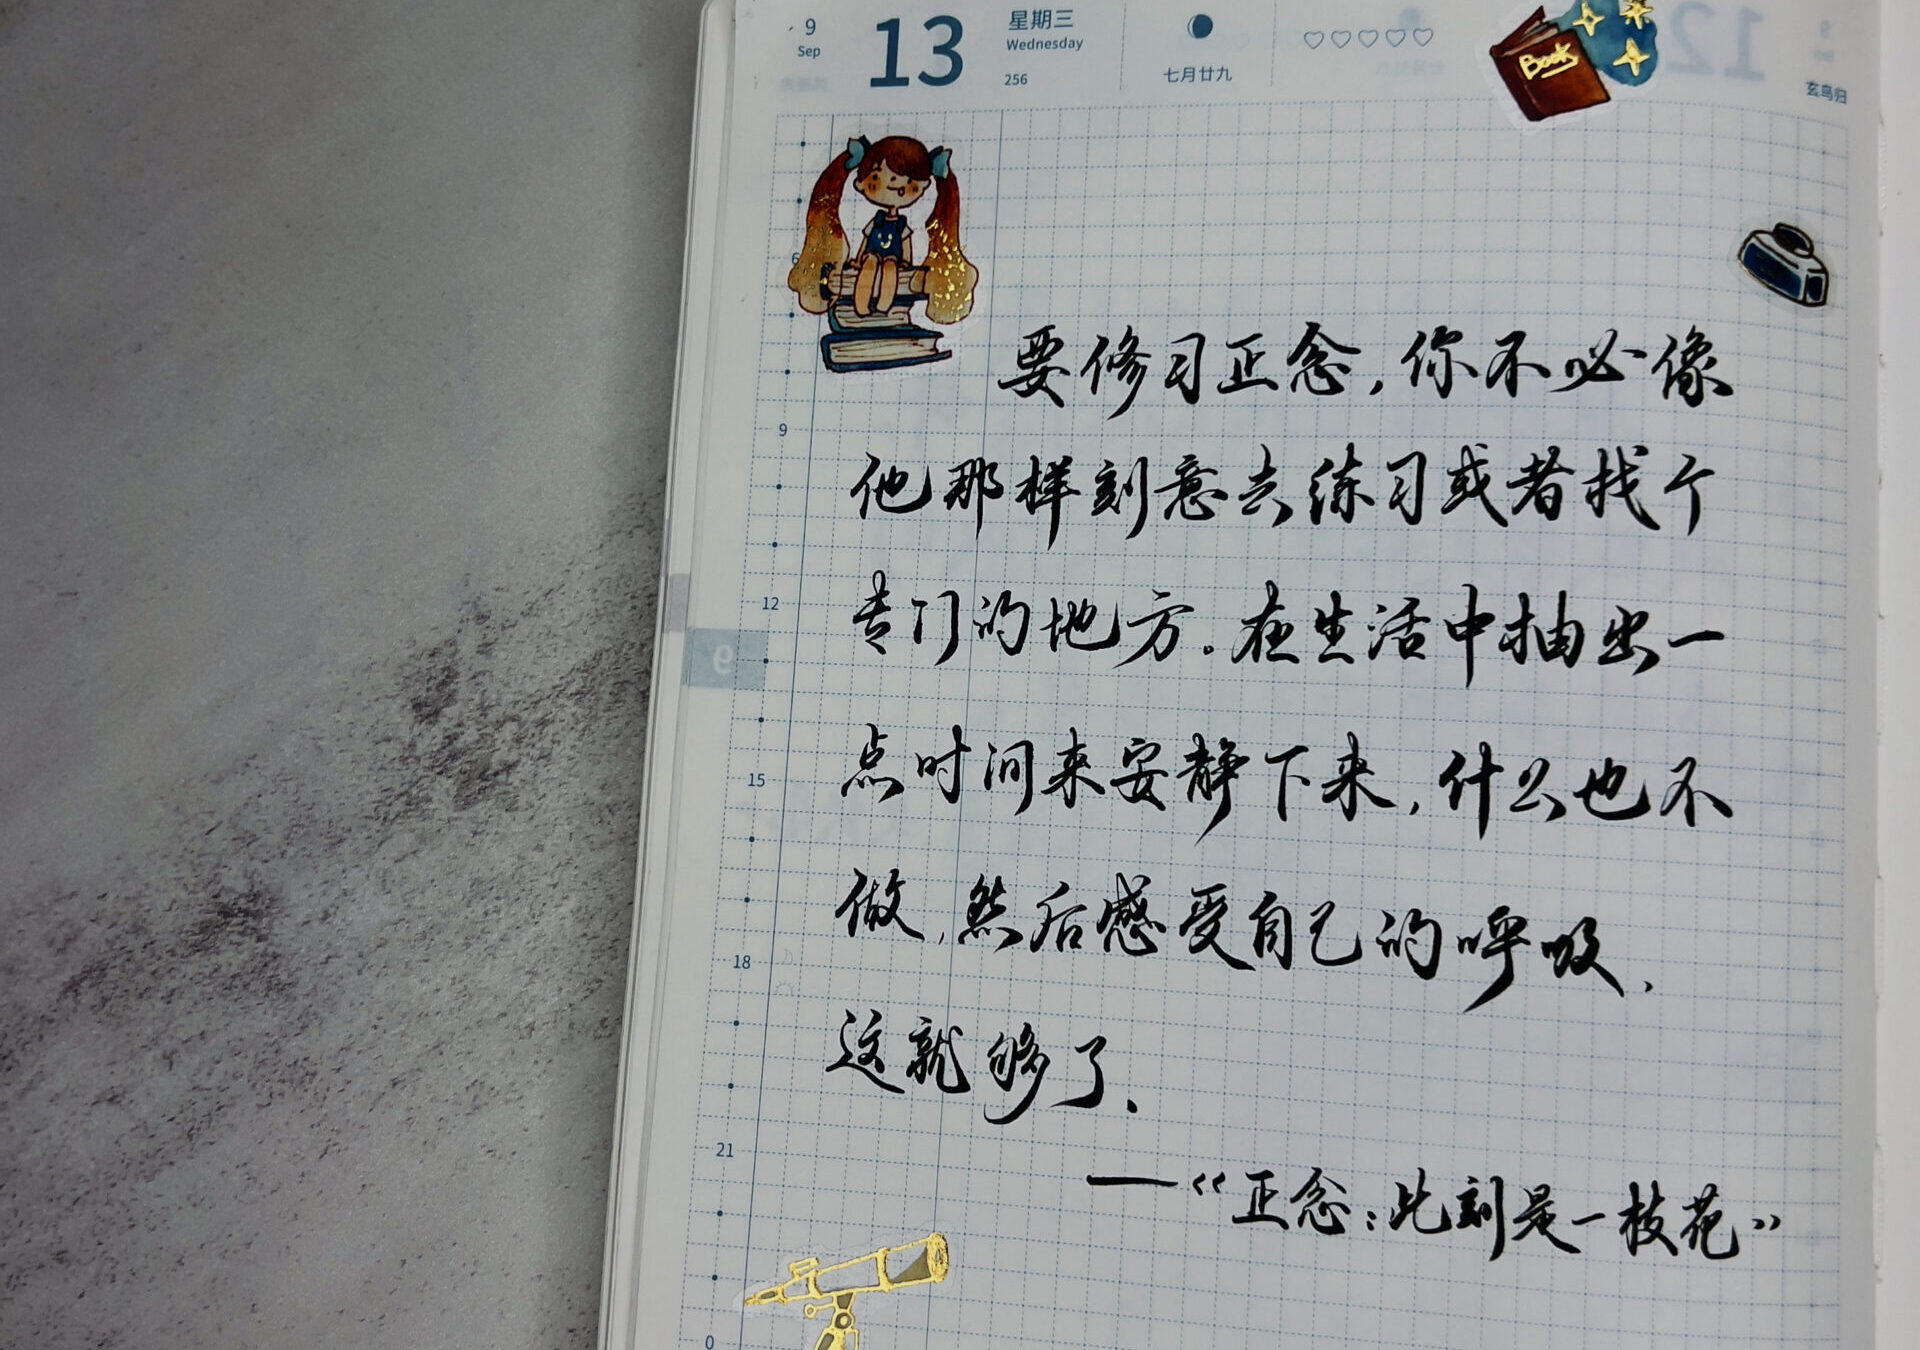 9
Sep
13
星期三
Wednesday
256
七月廿九
12
玄鸟归
Book
6
9
12
15
18
21
0
9
要修习正念，你不必像
他那样刻意去练习或者找个
专门的地方。在生活中抽出一
点时间来安静下来，什么也不
做，然后感受自己的呼吸，
这就够了、
—《正念：此刻是一枝花》